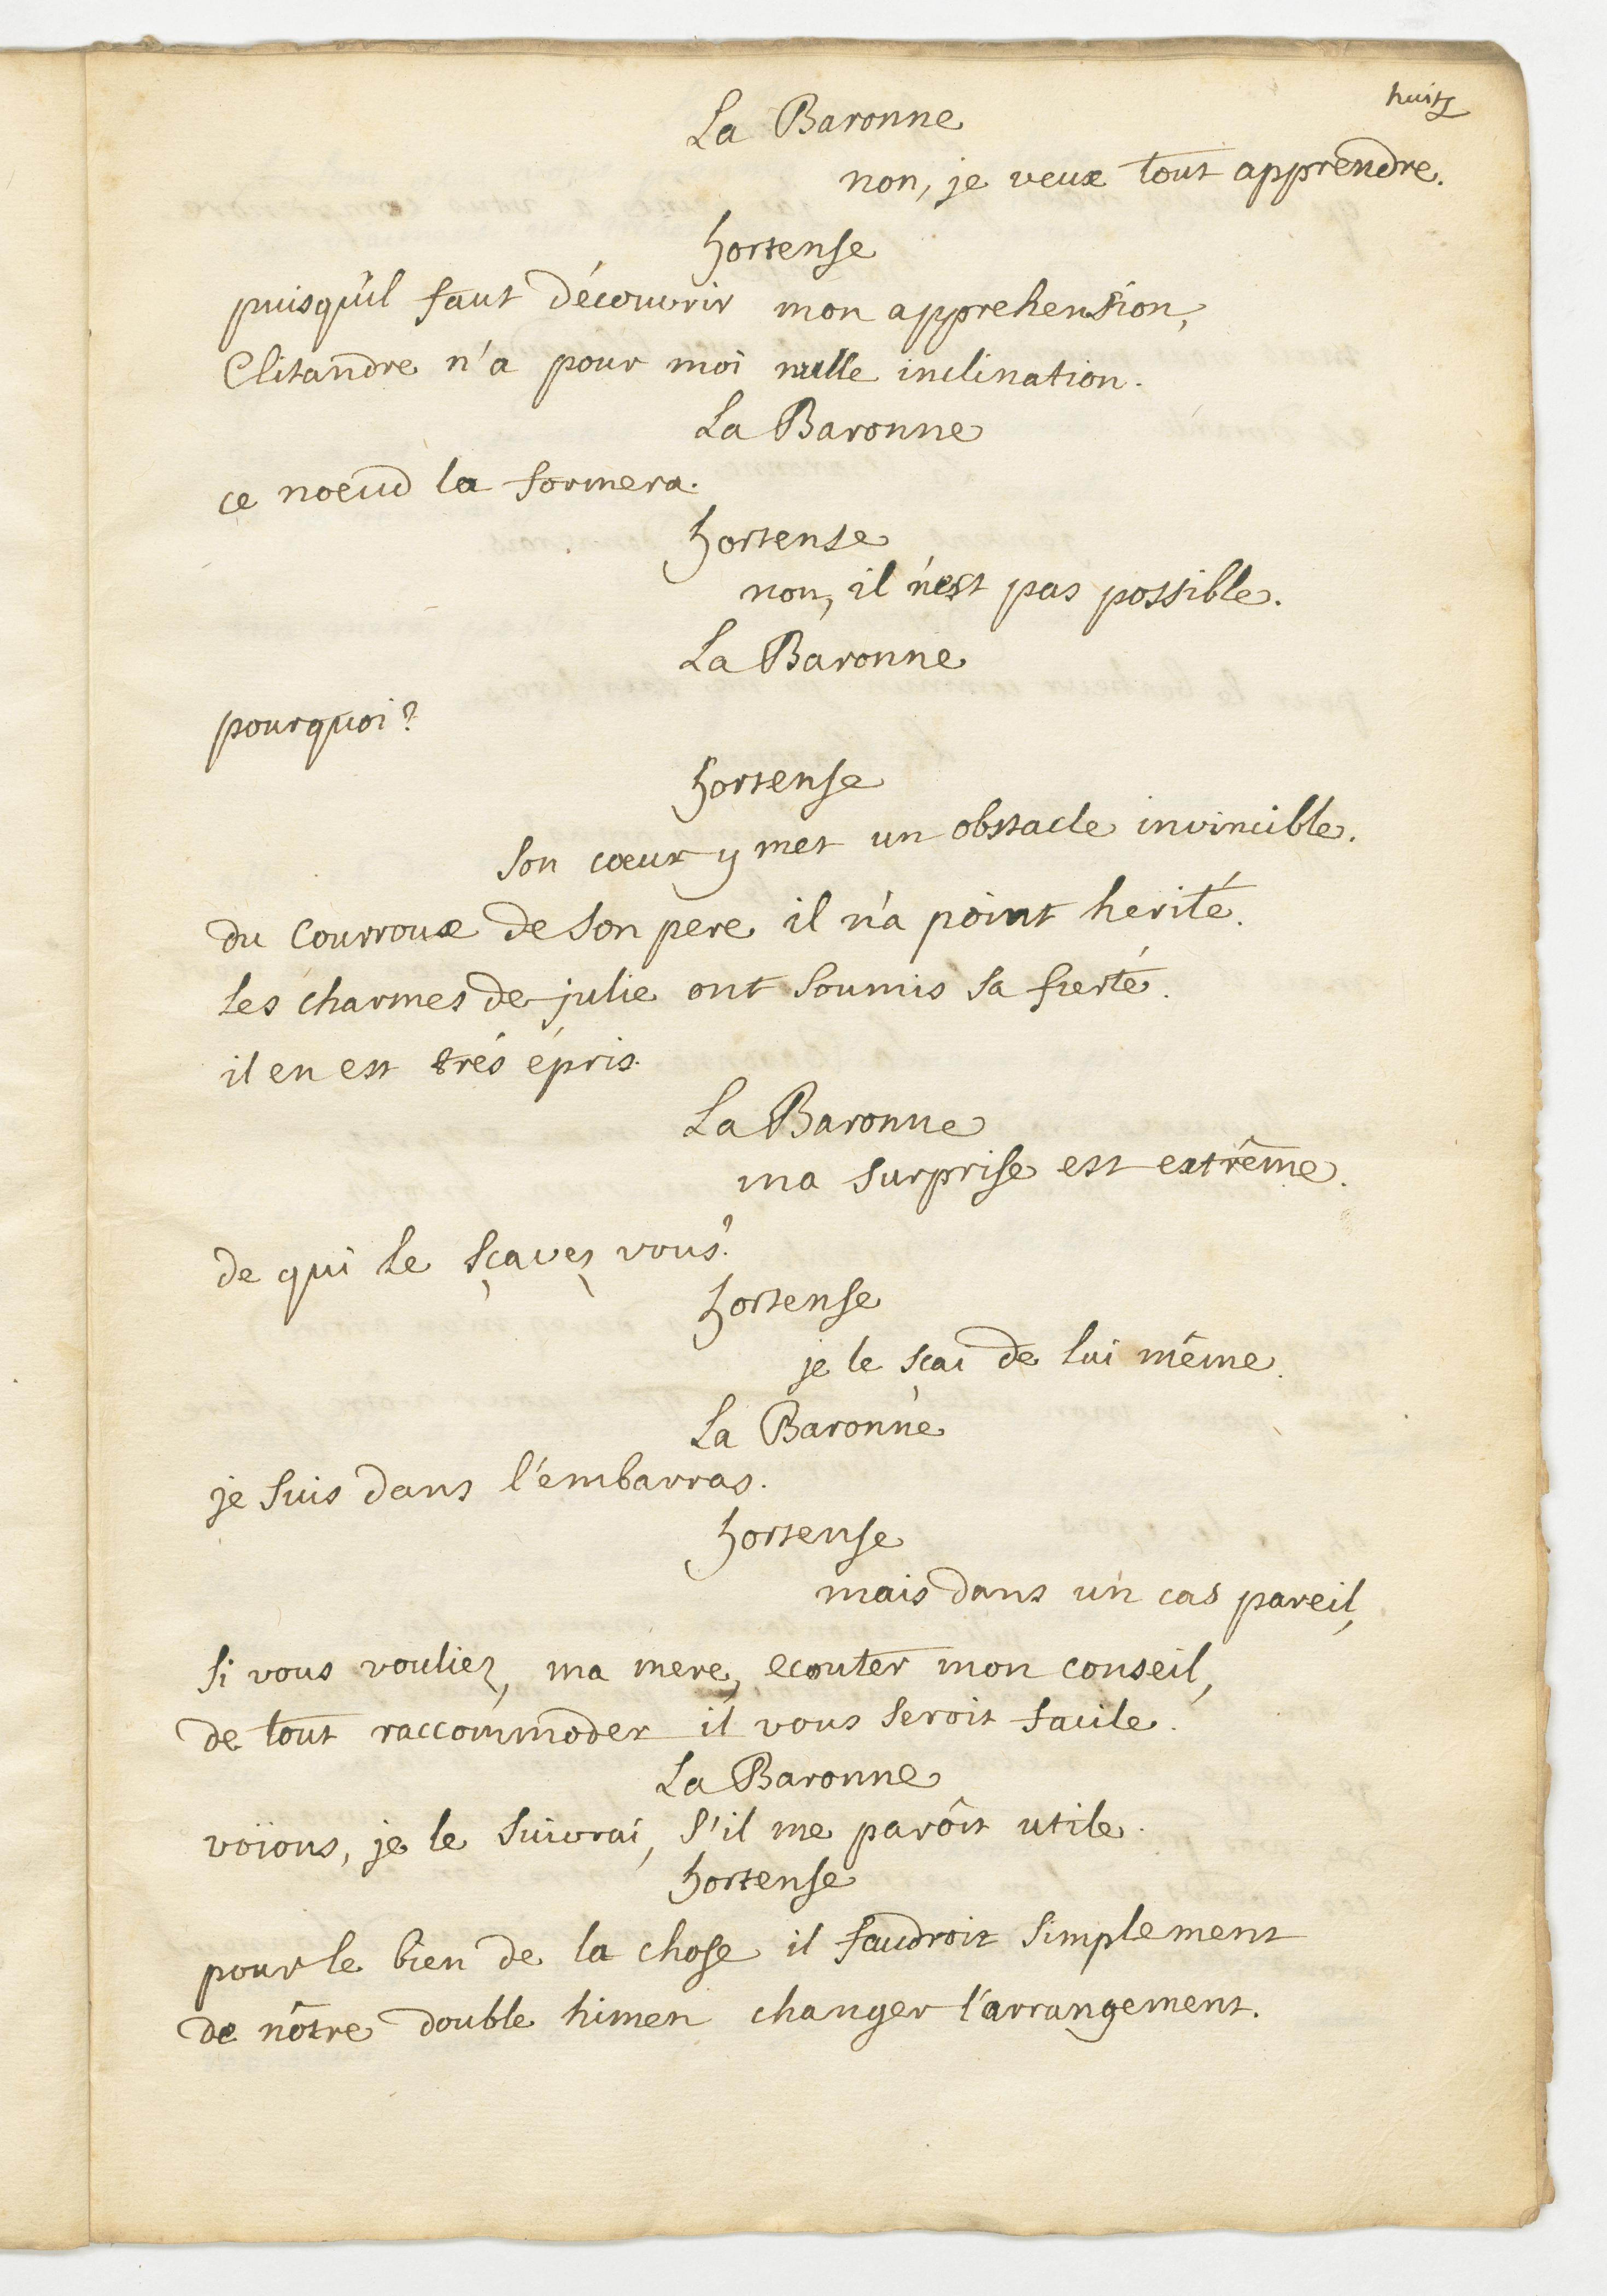 huit
La Baronne
non, je veux tout apprendre.
hortense
puisqu'il faut découvrir mon apprehension,
Clitandre n'a pour moi nulle inclination.
La Baronne
ce noeud la formera.
hortense
non, il n'est pas possible.
La Baronne
pourquoi?
hortense
son coeur y met un obstacle invincible.
du courroux de son pere il n'a point herité.
les charmes de julie ont soumis sa fierté.
il en est trés épris.
La Baronne
ma surprise est extrême.
de qui le sçavez vous?
hortense
je le sçai de lui même.
La Baronne
je suis dans l'embarras.
hortense
mais dans un cas pareil,
si vous vouliez, ma mere, ecouter mon conseil,
de tout raccommoder il vous seroit facile.
La Baronne
voïons, je le suivrai, s'il me parôit utile.
hortense
pour le bien de la chose il faudroit simplement
de nôtre double himen changer l'arrangement.